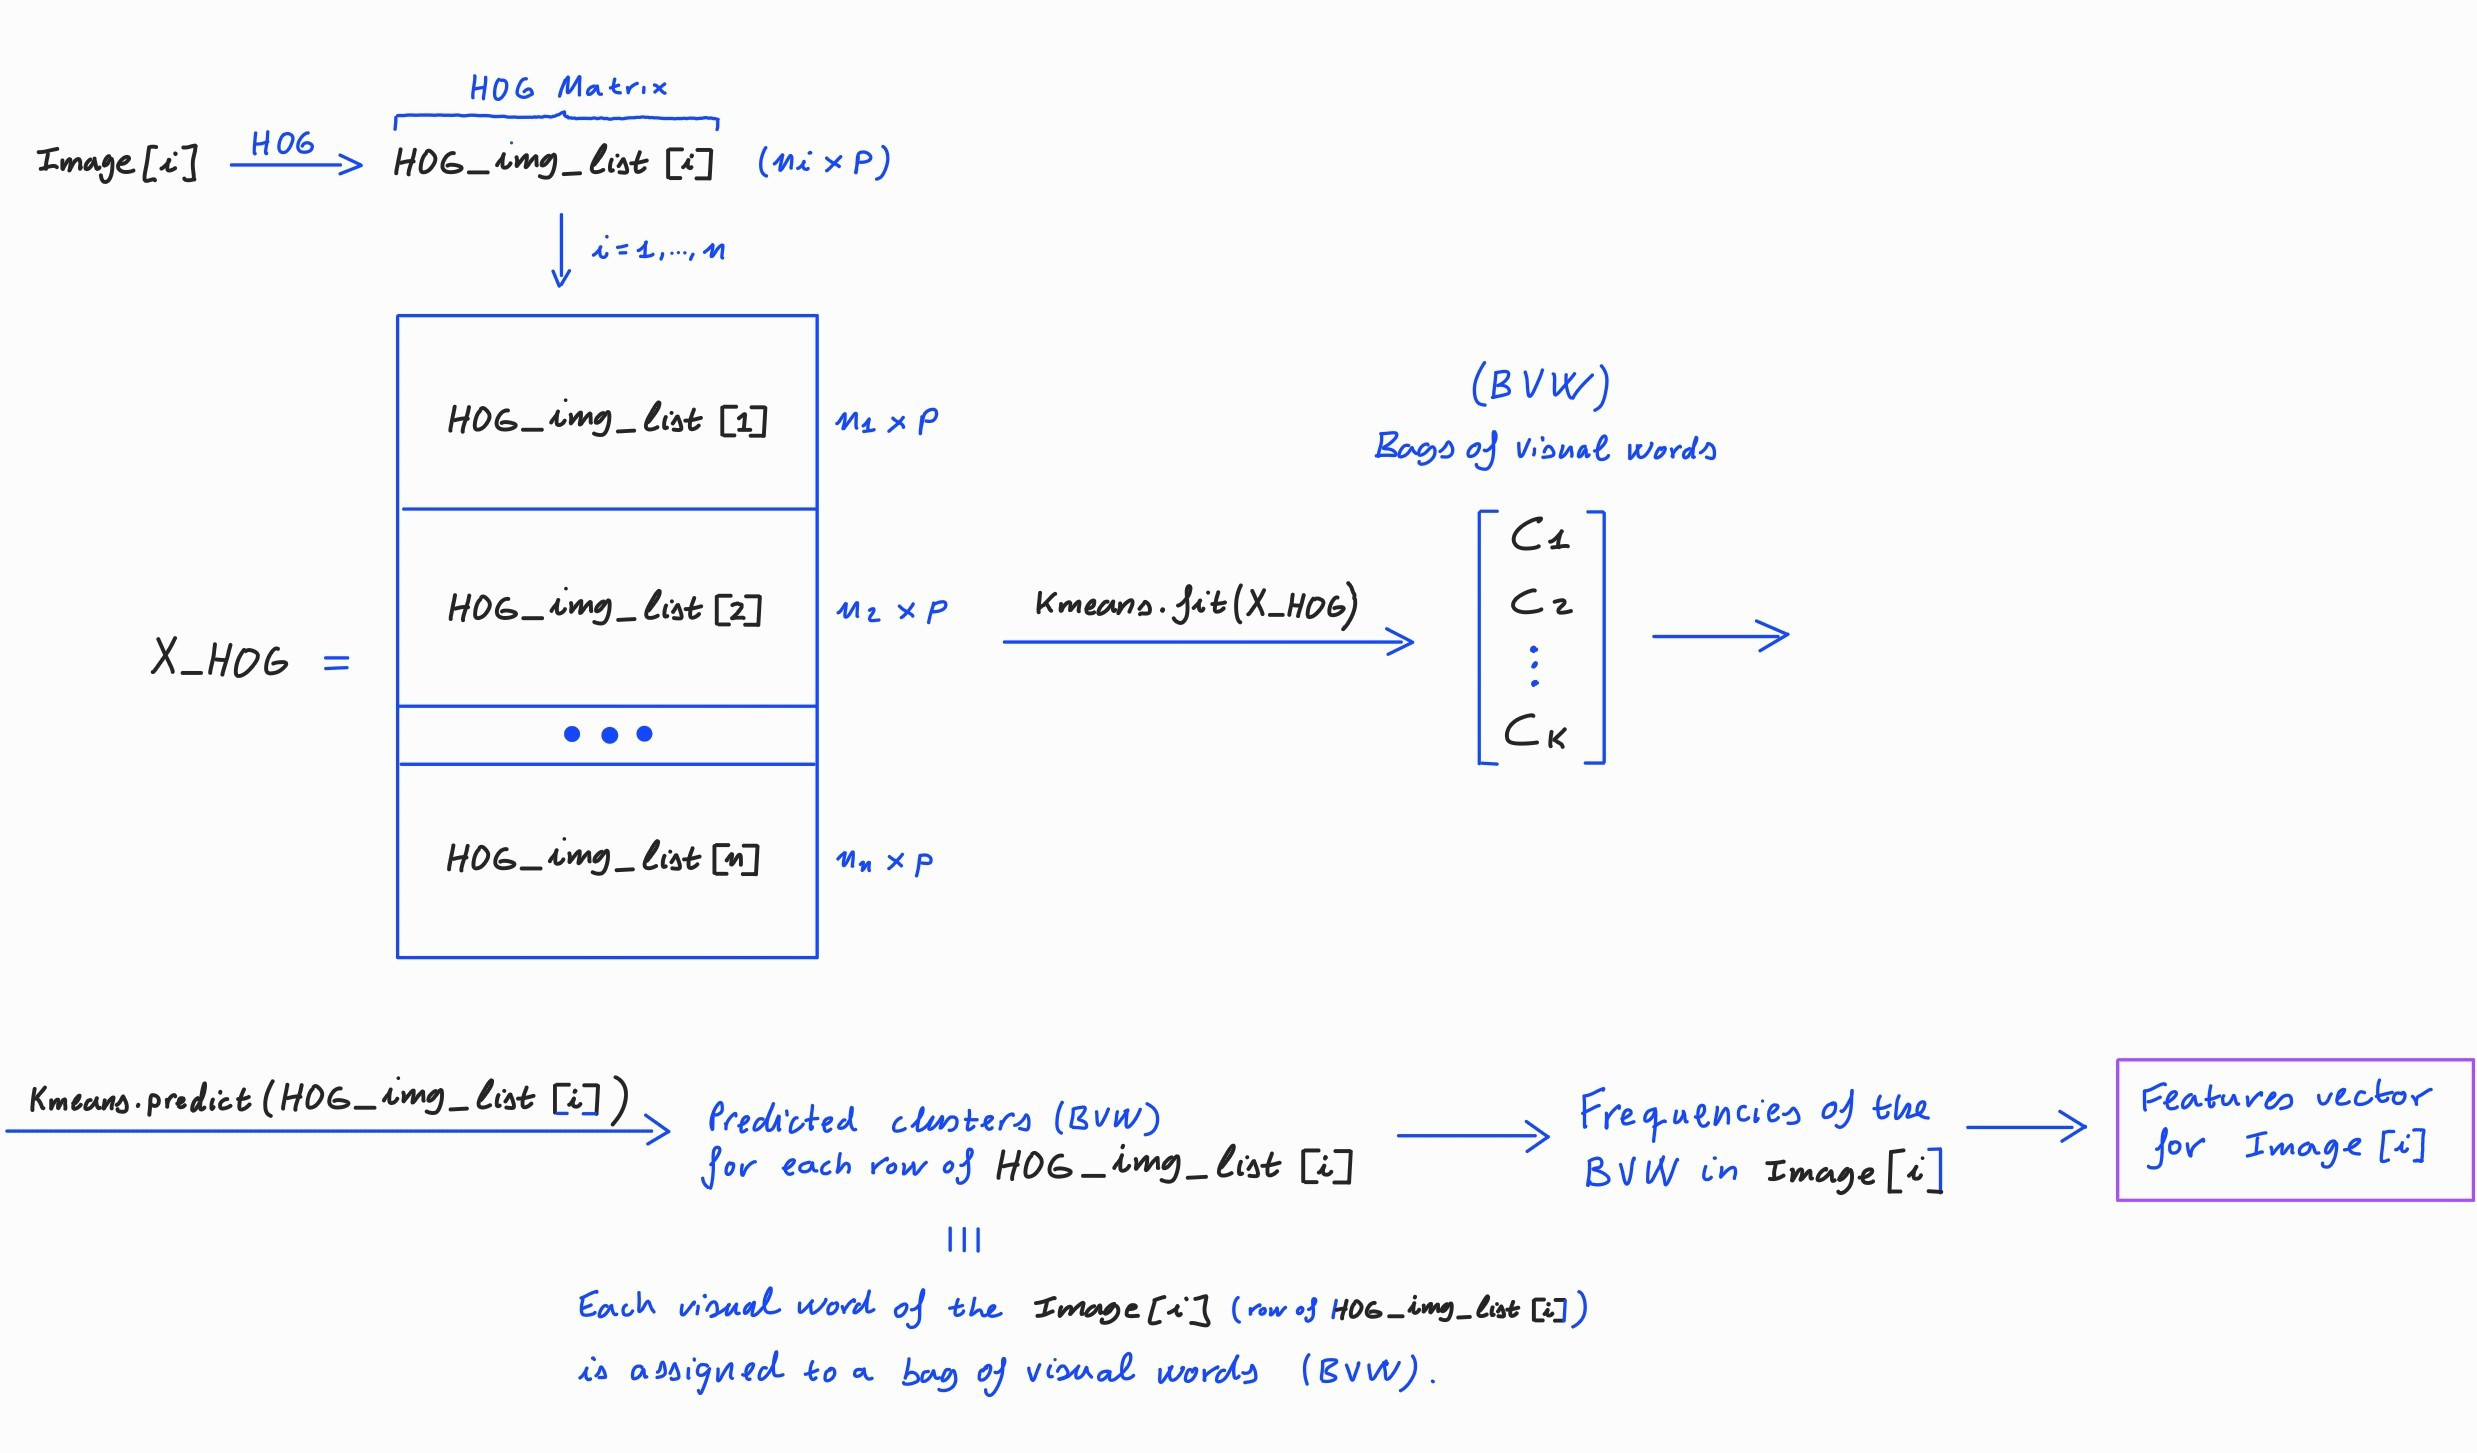 HOG Matrix
Image[i] HOG HOG_img_list [i] (ni × P)
i = 1,...,n
HOG_img_list [1] n1 × P
(BVW)
Bags of visual words
C1
HOG_img_list [2] n2 × P
Kmeans.fit(X_HOG)
C2
X_HOG =
CK
HOG_img_list [n] nn × P
Kmeans.predict (HOG_img_list [i])
Predicted clusters (BVW)
for each row of HOG_img_list [i]
Frequencies of the
BVW in Image [i]
Features vector
for Image [i]
Each visual word of the Image [i] (row of HOG_img_list [i])
is assigned to a bag of visual words (BVW).